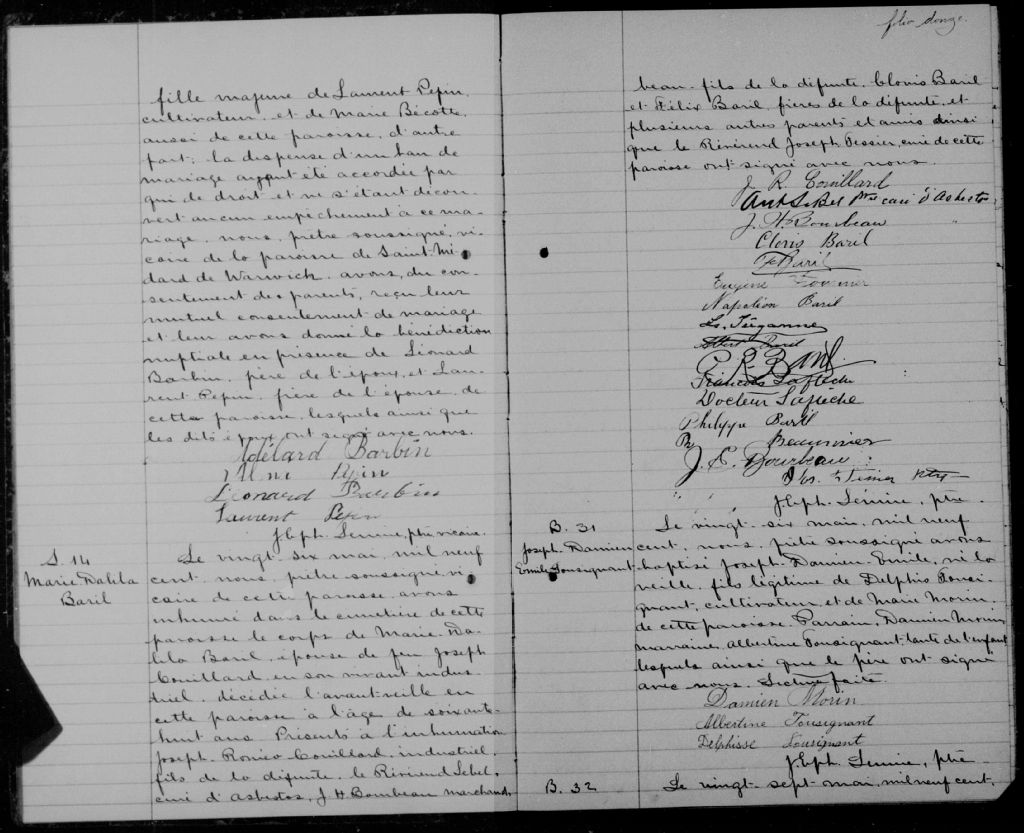 fille majeure de Laurent Pepin,
cultivateur, et de Marie Bécotte,
aussi de cette paroisse, d'autre
part; la dispense d'un ban de
mariage ayant été accordée par
qui de droit et ne s'étant décou-
vert aucun empêchement à ce ma-
riage, nous, prêtre soussigné, vi-
caire de la paroisse de Saint-Mé-
dard de Warwick, avons, du con-
sentement des parents, reçu leur
mutuel consentement de mariage
et leur avons donné la bénédiction
nuptiale en présence de Léonard
Barbin, père de l'époux, et Lau-
rent Pepin, frère de l'épouse, de
cette paroisse, lesquels ainsi que
les dits époux ont signé avec nous.
Adélard Barbin
Pepin
Léonard Barbin
Laurent Pepin
Jseph. Lemire, ptre, vicaire.
S. 14
Marie Dalila
Baril
Le vingt-six mai, mil neuf
cent, nous, prêtre soussigné, vi-
caire de cette paroisse, avons
inhumé dans le cimetière de cette
paroisse le corps de Marie-Da-
lila Baril, épouse de feu Joseph
Couillard, en son vivant indus-
triel, décédée l'avant-veille en
cette paroisse à l'âge de soixante-
huit ans. Présents à l'inhumation
Joseph Roméo Couillard, industriel,
fils de la défunte, le Révérend Lebel,
curé d'Asbestos, J. H. Bourbeau marchand,
folio douze.
beau-fils de la défunte, Clovis Baril
et Félix Baril, frères de la défunte, et
plusieurs autres parents et amis ainsi
que le Révérend Joseph Tessier, curé de cette
paroisse ont signé avec nous.
J. R. Couillard
Ant. Lebel Ptre curé d'Asbestos
J. H. Bourbeau
Cloris Baril
F. Baril
Eugène Fournier
Napoléon Baril
Albert Baril
Baril
François Laflèche
Docteur Laflèche
Philippe Baril
J. E. Bourbeau
Jos. Tessier Ptre
Jseph. Lemire, ptre.
B. 31
Joseph Damien
Emile Tousignant
Le vingt-six mai, mil neuf
cent, nous, prêtre soussigné avons
baptisé Joseph-Damien-Emile, né la
veille, fils légitime de Delphis Tousi-
gnant, cultivateur, et de Marie Morin,
de cette paroisse. Parrain, Damien Morin,
marraine, Albertine Tousignant tante de l'enfant
lesquels ainsi que le père ont signé
avec nous. Lecture faite.
Damien Morin
Albertine Tousignant
Delphisse Tousignant
Jseph. Lemire, ptre
B. 32
Le vingt-sept mai, mil neuf cent,